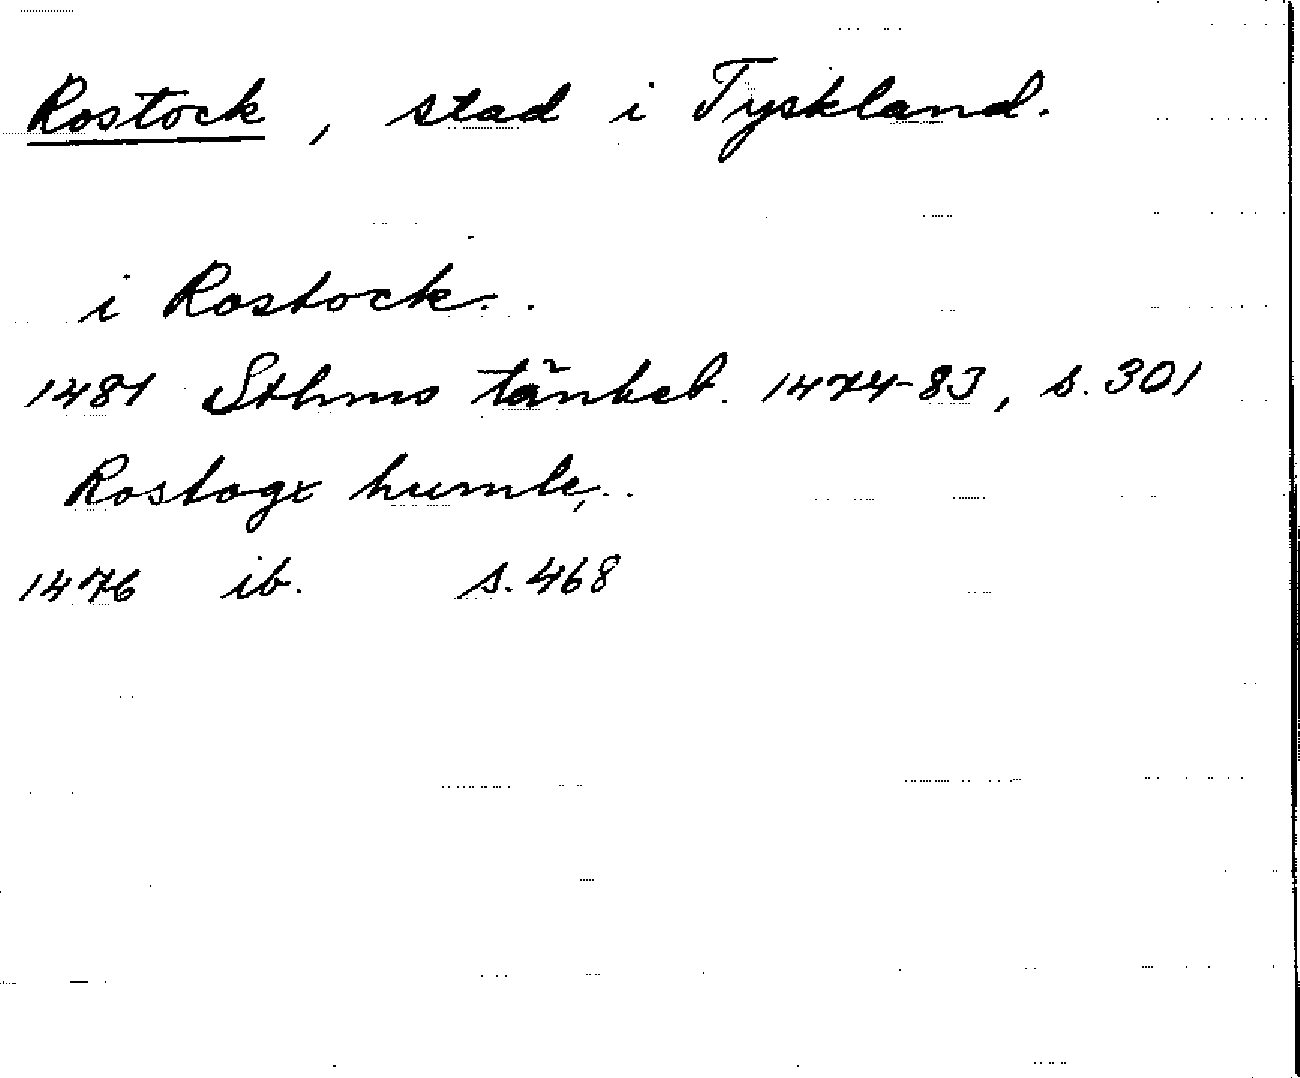 Rostock, stad i Tyskland.
i Rostock..
1481 Sthms tänkeb. 1474-83, s. 301
Rostogx humle,..
1476 ib. s. 468